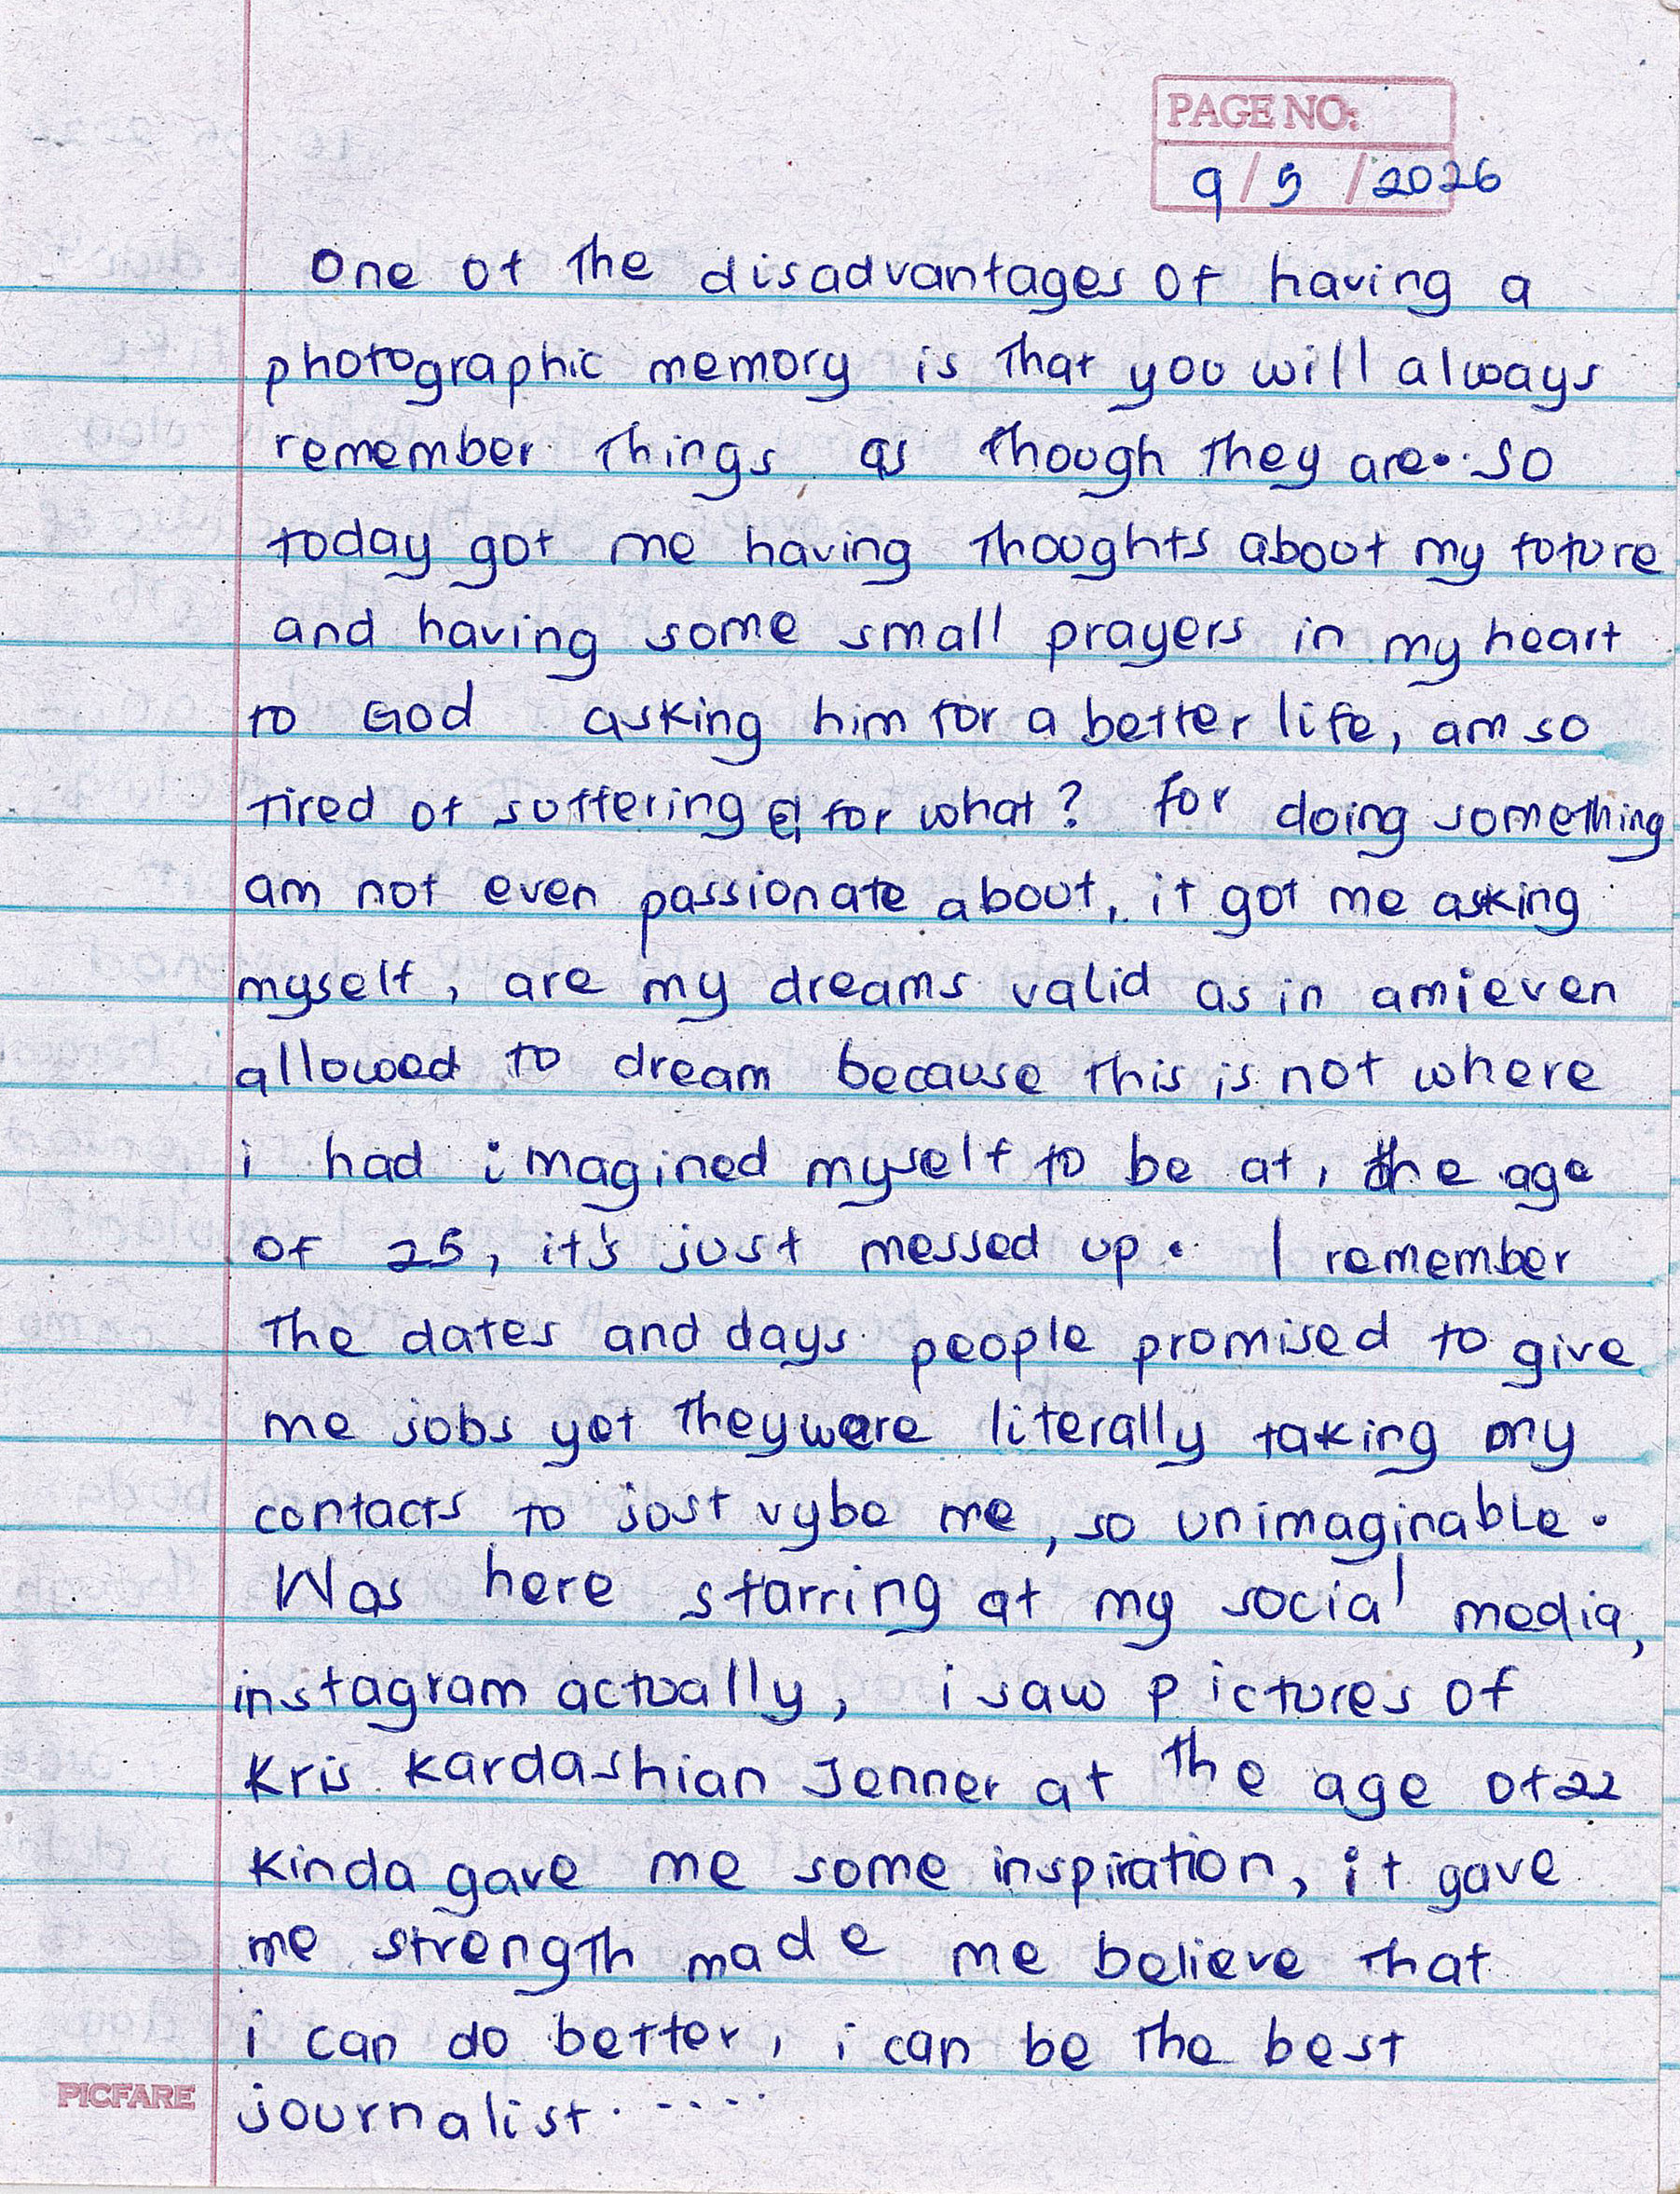 PAGE NO:
9/5/2026
One of the disadvantages of having a
photographic memory is that you will always
remember things as though they are. So
today got me having thoughts about my future
and having some small prayers in my heart
to God asking him for a better life, am so
tired of suffering & for what? for doing something
am not even passionate about, it got me asking
myself, are my dreams valid as in am i even
allowed to dream because this is not where
i had imagined myself to be at, the age
of 25, it's just messed up. I remember
the dates and days people promised to give
me jobs yet they were literally taking my
contacts to just vybe me, so unimaginable.
Was here starring at my social media,
instagram actually, i saw pictures of
Kris Kardashian Jenner at the age of 22
Kinda gave me some inspiration, it gave
me strength made me believe that
i can do better, i can be the best
journalist.....
PICFARE